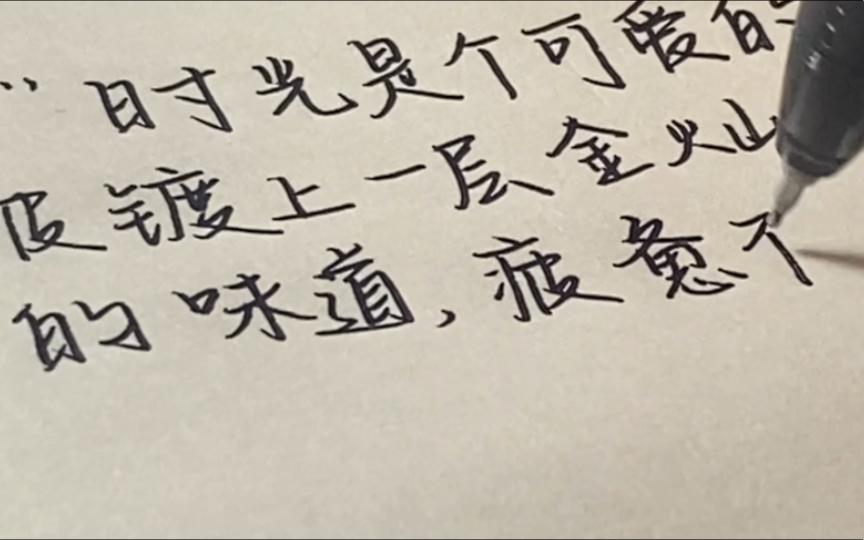 ”时光是个可爱的
皮镀上一层金灿
的味道，疲惫不